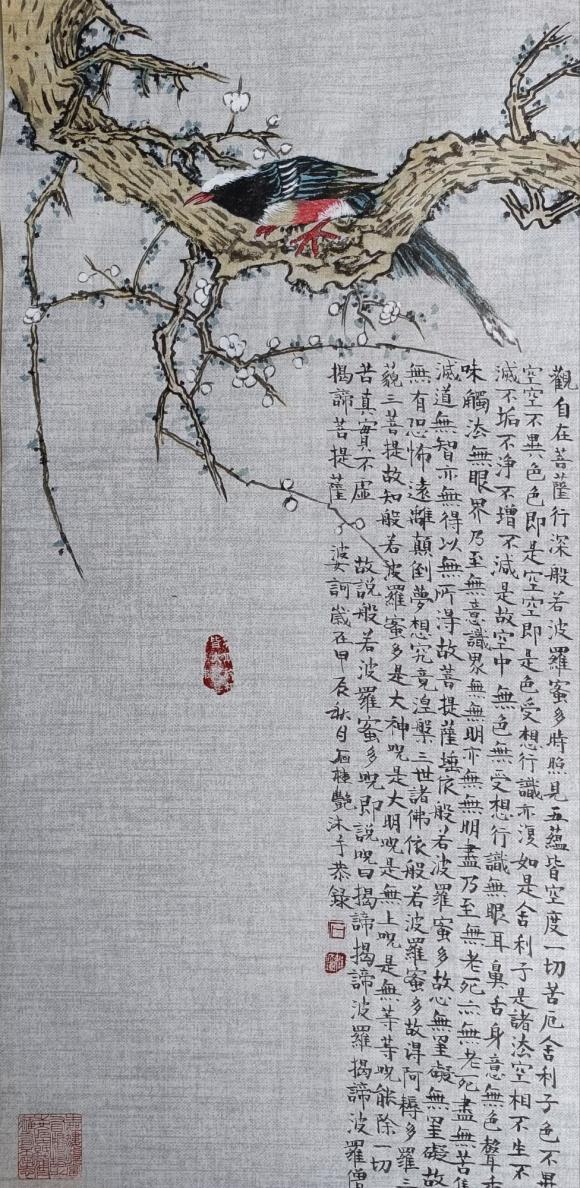 觀自在菩薩行深般若波羅蜜多時照見五蘊皆空度一切苦厄舍利子色不異
空空不異色色即是空空即是色受想行識亦復如是舍利子是諸法空相不生不
滅不垢不淨不增不減是故空中無色無受想行識無眼耳鼻舌身意無色聲香
味觸法無眼界乃至無意識界無無明亦無無明盡乃至無老死亦無老死盡無苦集
滅道無智亦無得以無所得故菩提薩埵依般若波羅蜜多故心無罣礙無罣礙故
無有恐怖遠離顛倒夢想究竟涅槃三世諸佛依般若波羅蜜多故得阿耨多羅三
藐三菩提故知般若波羅蜜多是大神呪是大明呪是無上呪是無等等呪能除一切
苦真實不虛故說般若波羅蜜多呪即說呪曰揭諦揭諦波羅揭諦波羅僧
揭諦菩提薩婆訶歲在甲辰秋月石桂艷沐手恭録